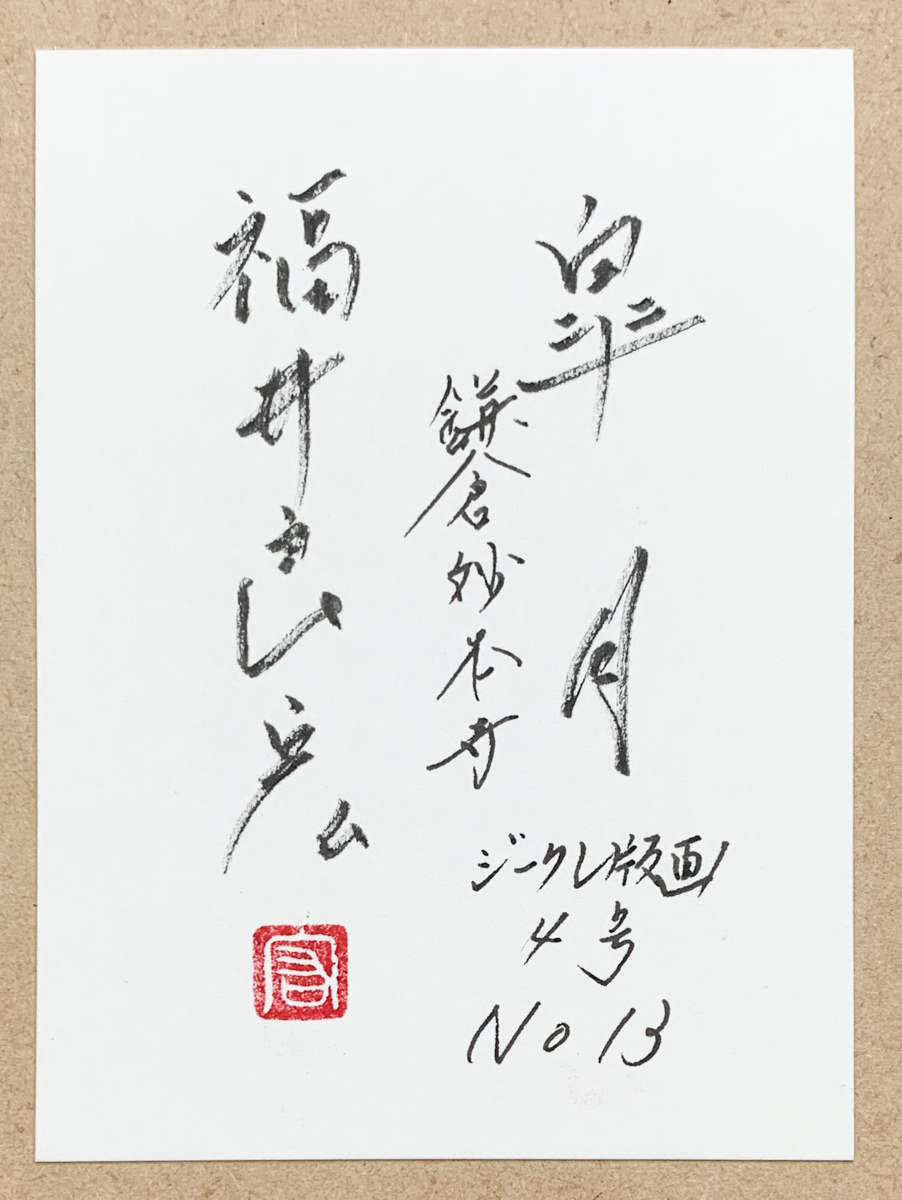 皐月
鎌倉妙本寺
ジークレ版画
4号
No 13
福井良宏